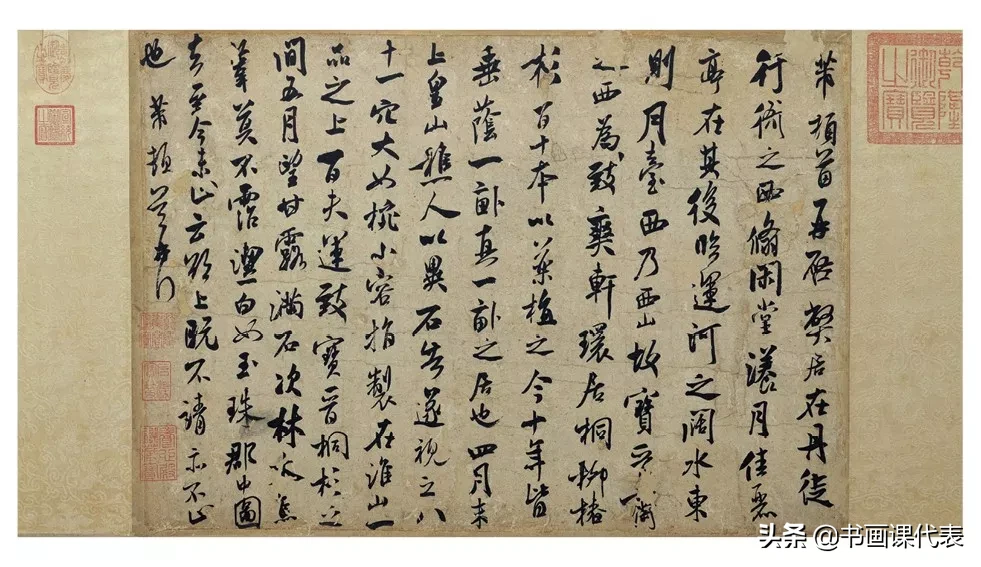 乾隆御覽之寶
芾頓首再啓弊居在丹徒
行衙之西翛閑堂漾月佳麗
亭在其後臨運河之闊水東
則月臺西乃西山故寶晉齋
之西為致爽軒環居桐柳椿
杉百十本以藥植之今十年皆
垂蔭一畝真一畝之居也四月末
上皇山樵人以異石告遂視之八
十一穴大如椀小容指製在淮山一
品之上百夫運致寶晉桐杉之
間五月望甘露滿石次林木焉
葦莫不霑潔白如玉珠郡中圖
去至今未止云欲上既不請亦不止
也 芾頓首
头条 @书画课代表